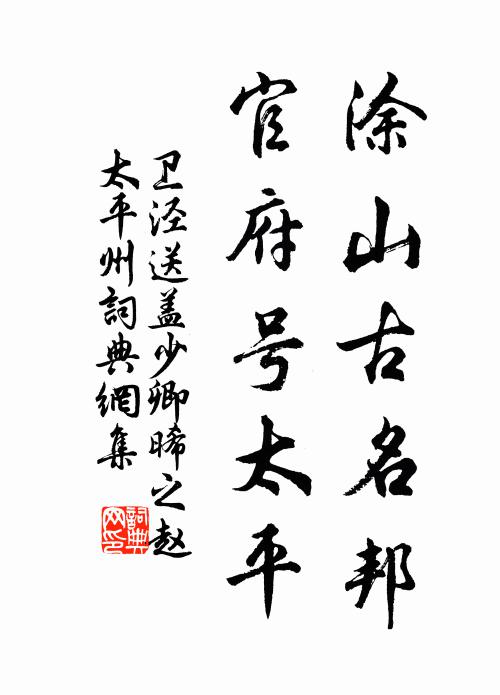 涂山古名邦
官府号太平
卫泾送盖少卿晞之赵
太平州詞典網集
詞典網印